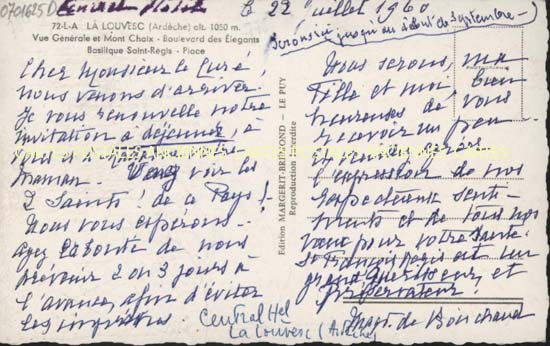 0701625D
Central Hotel
le 22 juillet 1960
72-L-A LA LOUVESC (Ardèche) alt. 1050 m.
Vue Générale et Mont Chaix - Boulevard des Elégants
Basilique Saint-Régis - Place
serons ici jusqu'au début de Septembre -
Cher Monsieur le Curé,
nous venons d'arriver.
Je vous renouvelle notre
invitation à déjeuner, à
vous
maman. Venez voir les
2 Saints! de ce Pays!
Nous vous espérons.
Ayez la bonté de nous
prévenir 2 ou 3 jours à
l'avance, afin d'éviter
les imprévus.
Central Hel
La Louvesc (Ardèche)
Edition MARGERIT-BREMOND - LE PUY
Reproduction Interdite
Nous serons, ma
fille et moi bien
heureuses de vous
recevoir un peu.
l'expression de nos
respectueux senti-
ments et de tous nos
vœux pour votre santé.
St François Régis est un
grand guérisseur, et
préservateur.
de Boirchaud